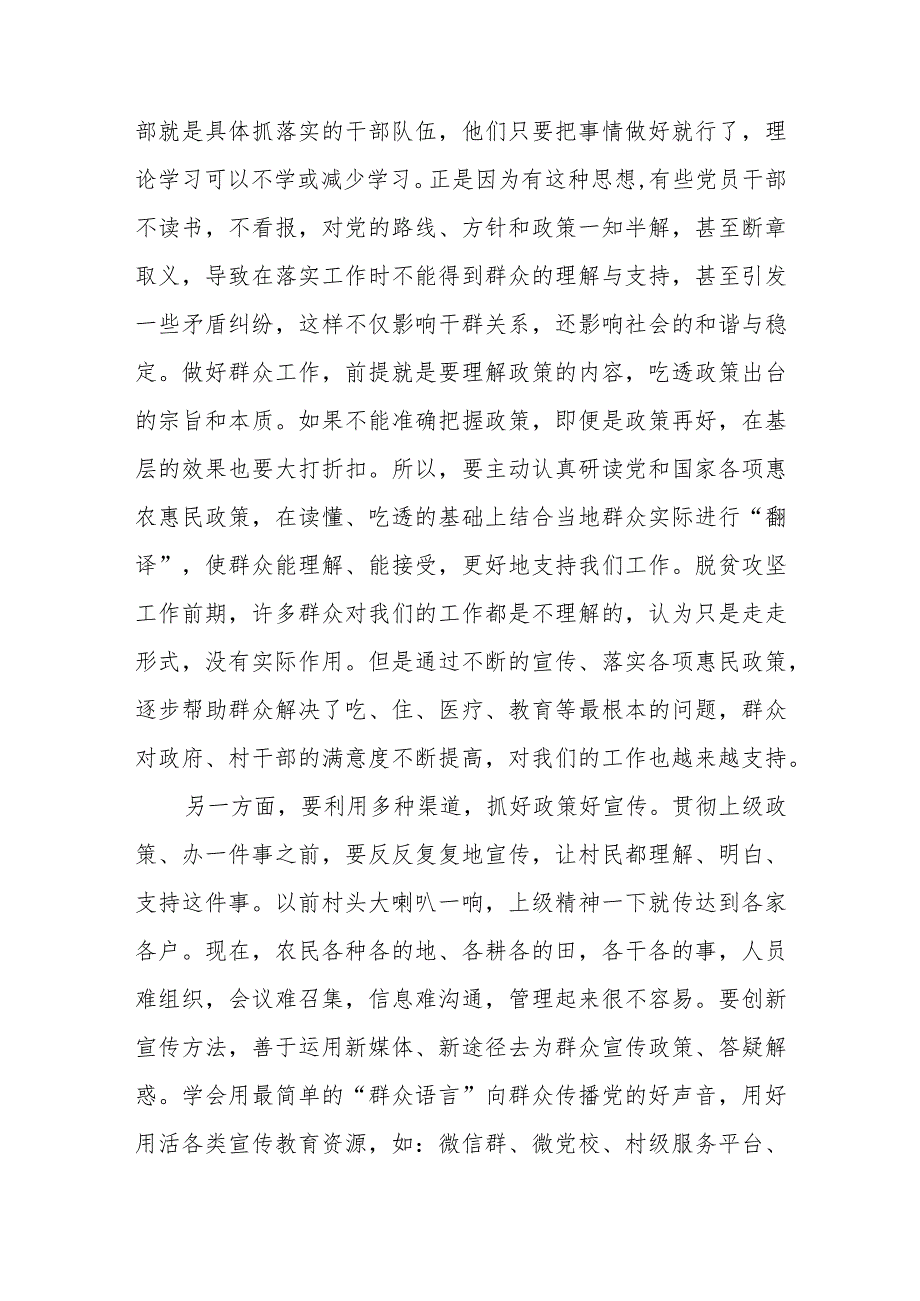 部就是具体抓落实的干部队伍，他们只要把事情做好就行了，理
论学习可以不学或减少学习。正是因为有这种思想,有些党员干部
不读书，不看报，对党的路线、方针和政策一知半解，甚至断章
取义，导致在落实工作时不能得到群众的理解与支持，甚至引发
一些矛盾纠纷，这样不仅影响干群关系，还影响社会的和谐与稳
定。做好群众工作，前提就是要理解政策的内容，吃透政策出台
的宗旨和本质。如果不能准确把握政策，即便是政策再好，在基
层的效果也要大打折扣。所以，要主动认真研读党和国家各项惠
农惠民政策，在读懂、吃透的基础上结合当地群众实际进行“翻
译”，使群众能理解、能接受，更好地支持我们工作。脱贫攻坚
工作前期，许多群众对我们的工作都是不理解的，认为只是走走
形式，没有实际作用。但是通过不断的宣传、落实各项惠民政策，
逐步帮助群众解决了吃、住、医疗、教育等最根本的问题，群众
对政府、村干部的满意度不断提高，对我们的工作也越来越支持。
另一方面，要利用多种渠道，抓好政策好宣传。贯彻上级政
策、办一件事之前，要反反复复地宣传，让村民都理解、明白、
支持这件事。以前村头大喇叭一响，上级精神一下就传达到各家
各户。现在，农民各种各的地、各耕各的田，各干各的事，人员
难组织，会议难召集，信息难沟通，管理起来很不容易。要创新
宣传方法，善于运用新媒体、新途径去为群众宣传政策、答疑解
惑。学会用最简单的“群众语言”向群众传播党的好声音，用好
用活各类宣传教育资源，如：微信群、微党校、村级服务平台、